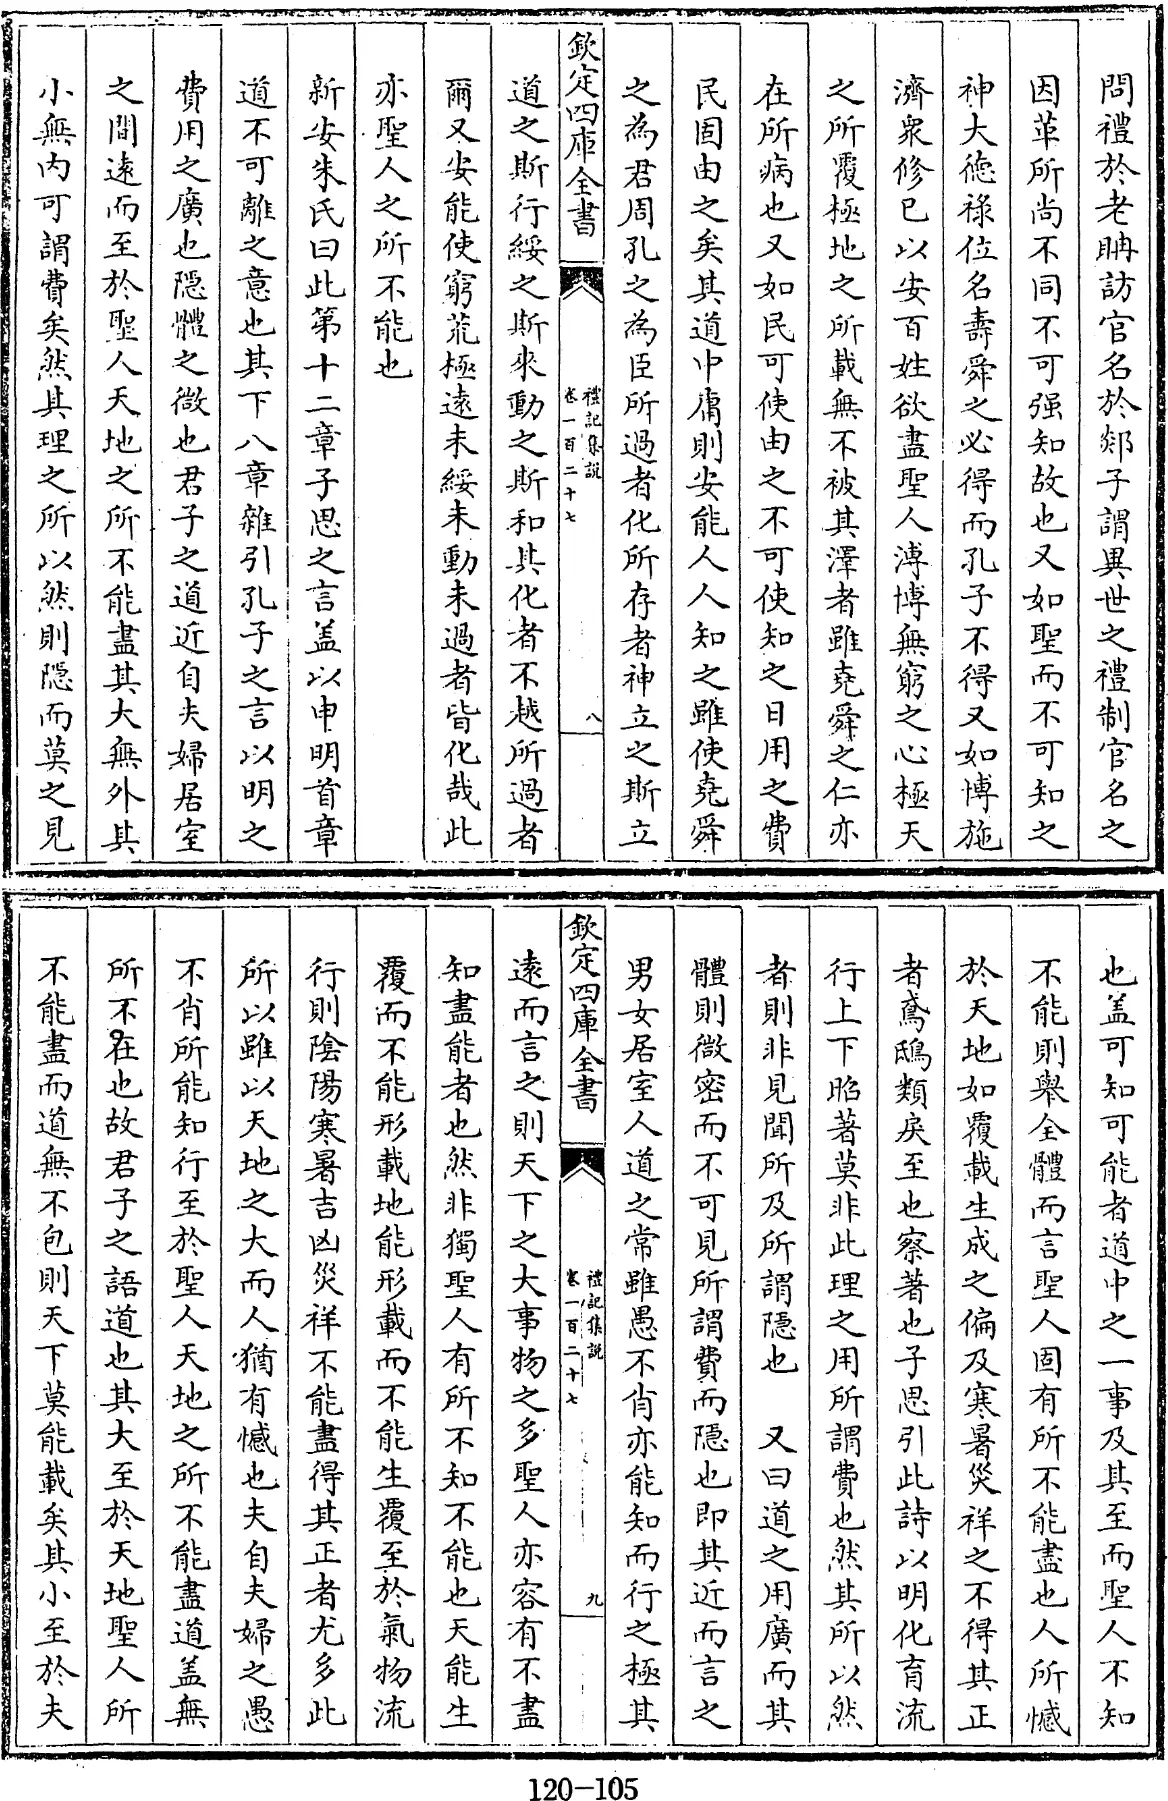 問禮於老聃訪官名於郯子謂異世之禮制官名之
因革所尚不同不可强知故也又如聖而不可知之
神大德祿位名壽舜之必得而孔子不得又如博施
濟衆修已以安百姓欲盡聖人溥博無窮之心極天
之所覆極地之所載無不被其澤者雖堯舜之仁亦
在所病也又如民可使由之不可使知之日用之費
民固由之矣其道中庸則安能人人知之雖使堯舜
之為君周孔之為臣所過者化所存者神立之斯立
欽定四庫全書
禮記集說
卷一百二十七
八
道之斯行綏之斯來動之斯和其化者不越所過者
爾又安能使窮荒極遠未綏未動未過者皆化哉此
亦聖人之所不能也
新安朱氏曰此第十二章子思之言盖以申明首章
道不可離之意也其下八章雜引孔子之言以明之
費用之廣也隱體之微也君子之道近自夫婦居室
之間遠而至於聖人天地之所不能盡其大無外其
小無内可謂費矣然其理之所以然則隱而莫之見
也盖可知可能者道中之一事及其至而聖人不知
不能則舉全體而言聖人固有所不能盡也人所憾
於天地如覆載生成之偏及寒暑災祥之不得其正
者鳶鴟類戾至也察著也子思引此詩以明化育流
行上下昭著莫非此理之用所謂費也然其所以然
者則非見聞所及所謂隱也　又曰道之用廣而其
體則微密而不可見所謂費而隱也即其近而言之
男女居室人道之常雖愚不肖亦能知而行之極其
欽定四庫全書
禮記集說
卷一百二十七
九
遠而言之則天下之大事物之多聖人亦容有不盡
知盡能者也然非獨聖人有所不知不能也天能生
覆而不能形載地能形載而不能生覆至於氣物流
行則陰陽寒暑吉凶災祥不能盡得其正者尤多此
所以雖以天地之大而人猶有憾也夫自夫婦之愚
不肖所能知行至於聖人天地之所不能盡道盖無
所不在也故君子之語道也其大至於天地聖人所
不能盡而道無不包則天下莫能載矣其小至於夫
120-105